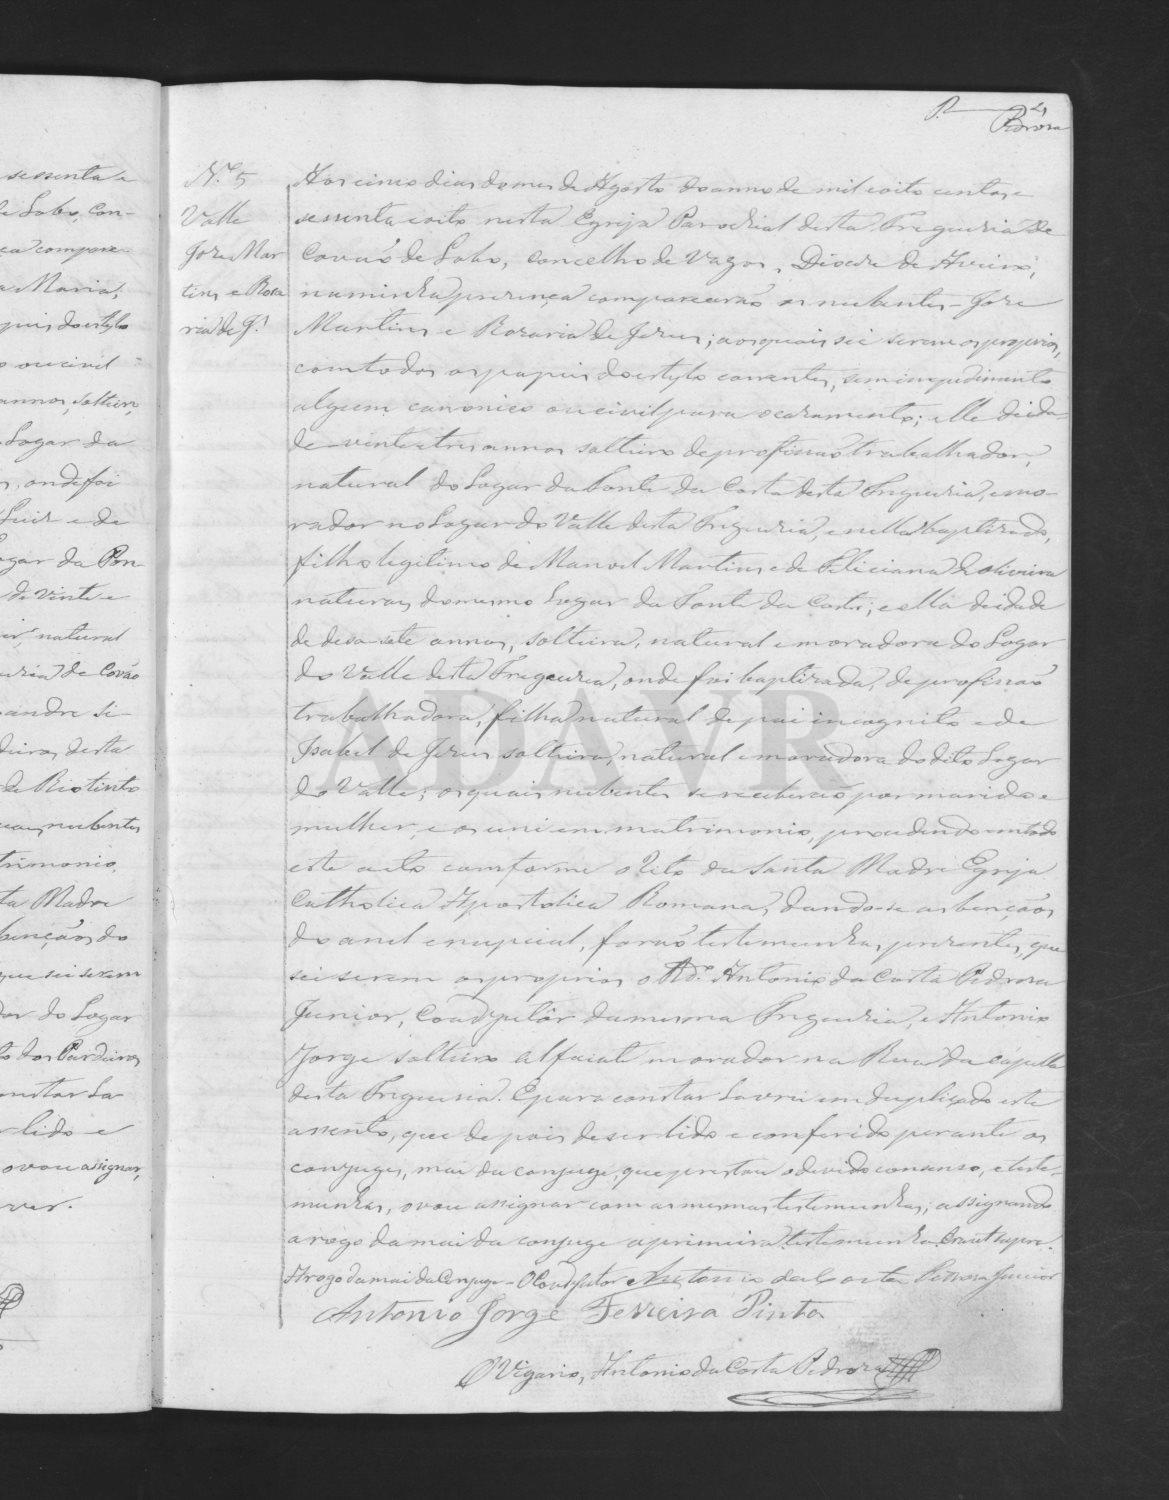 P. 4
Pedroza
sessenta e
de Lobo, Con-
Maria,
ou civil
annos, solteiro,
Logar da
onde foi
Luiz e de
Logar da Pon-
de vinte e
natural
de Covão
andre si-
desta
de Riotinto
nubentes
trimonio,
ta Madre
bençãos do
que sei serem
dor do Logar
to dos Pardieiros
constar La-
lido e
o vou assignar,
ver.
N.º 5
Valle
Joze Mar
tins e Roza
ria de J.
Aos cinco dias do mes de Agosto do anno de mil oito centos e
sessenta e oito nesta Egreja Parochial desta Freguezia de
Covaõ de Lobo, concelho de Vagos, Diocese de Aveiro,
na minha prezença compareceraõ os nubentes - Joze
Martins e Rozaria de Jezus; aos quais sei serem os proprios,
com todos os papeis do estylo correntes, sem impedimento
algum canonico ou civil para o cazamento; elle de ida-
de vinte e tres annos solteiro de profissaõ trabalhador,
natural do Logar da Fonte da Costa desta Freguezia, e mo-
rador no Logar do Valle desta Freguezia, e nella baptizado,
filho legitimo de Manoel Martins e de Feliciana de Oliveira
naturaes do mesmo Logar da Fonte da Costa; e ella de idade
de desasete annos, solteira, natural e moradora do Logar
do Valle desta Freguezia, onde foi baptizada, de profissaõ
trabalhadora, filha natural de pai incognito e de
Isabel de Jezus solteira, natural e moradora do dito Logar
do Valle; os quais nubentes se receberaõ por marido e
mulher, e os uni em matrimonio, procedendo em todo
este acto comforme o Rito da Santa Madre Egreja
Catholica Apostolica Romana, dando-se as bençãos
do anel e nupcial, foraõ testemunhas, prezentes, que
sei serem os proprios o Rdº. Antonio da Costa Pedroza
Junior, Coadjutôr da mesma Freguezia, e Antonio
Jorge solteiro alfaiate morador na Rua da Capella
desta Freguezia. E para constar Lavrei em duplicado este
assento, que depois de ser lido e conferido perante os
conjuges, mai da conjuge, que prestou o devido consenso, e teste-
munhas, o vou assignar com as mesmas testemunhas; assignando
a rogo da mai da conjuge a primeira testemunha. Era ut supra.
A rogo da mai da Conjuge - O Coadjutor Antonio da Costa Pedroza Junior
Antonio Jorge Ferreira Pinto
O Vigario, Antonio da Costa Pedroza
ADAVR